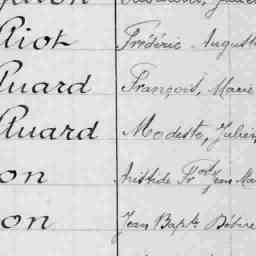 liot Frédéric Auguste
luard François, Marie
luard Modeste, Julien,
on Aristide Fr Jean Ma
on Jean Bapte Désiré